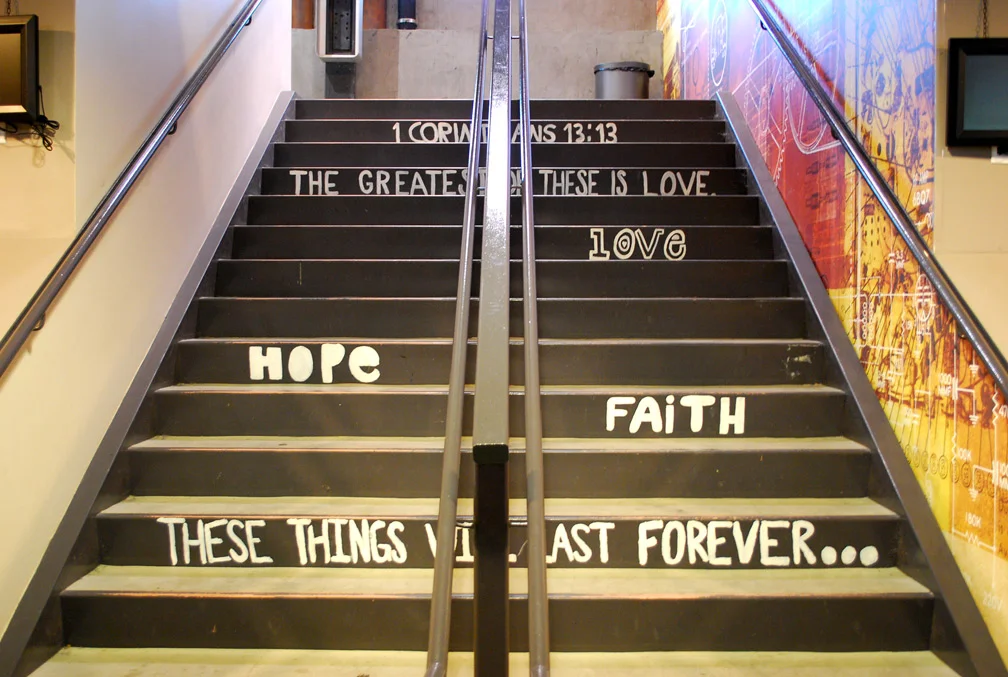 1 CORINTHIANS 13:13
THE GREATEST OF THESE IS LOVE.
love
HOPe
FAiTH
THESE THINGS WILL LAST FOREVER...